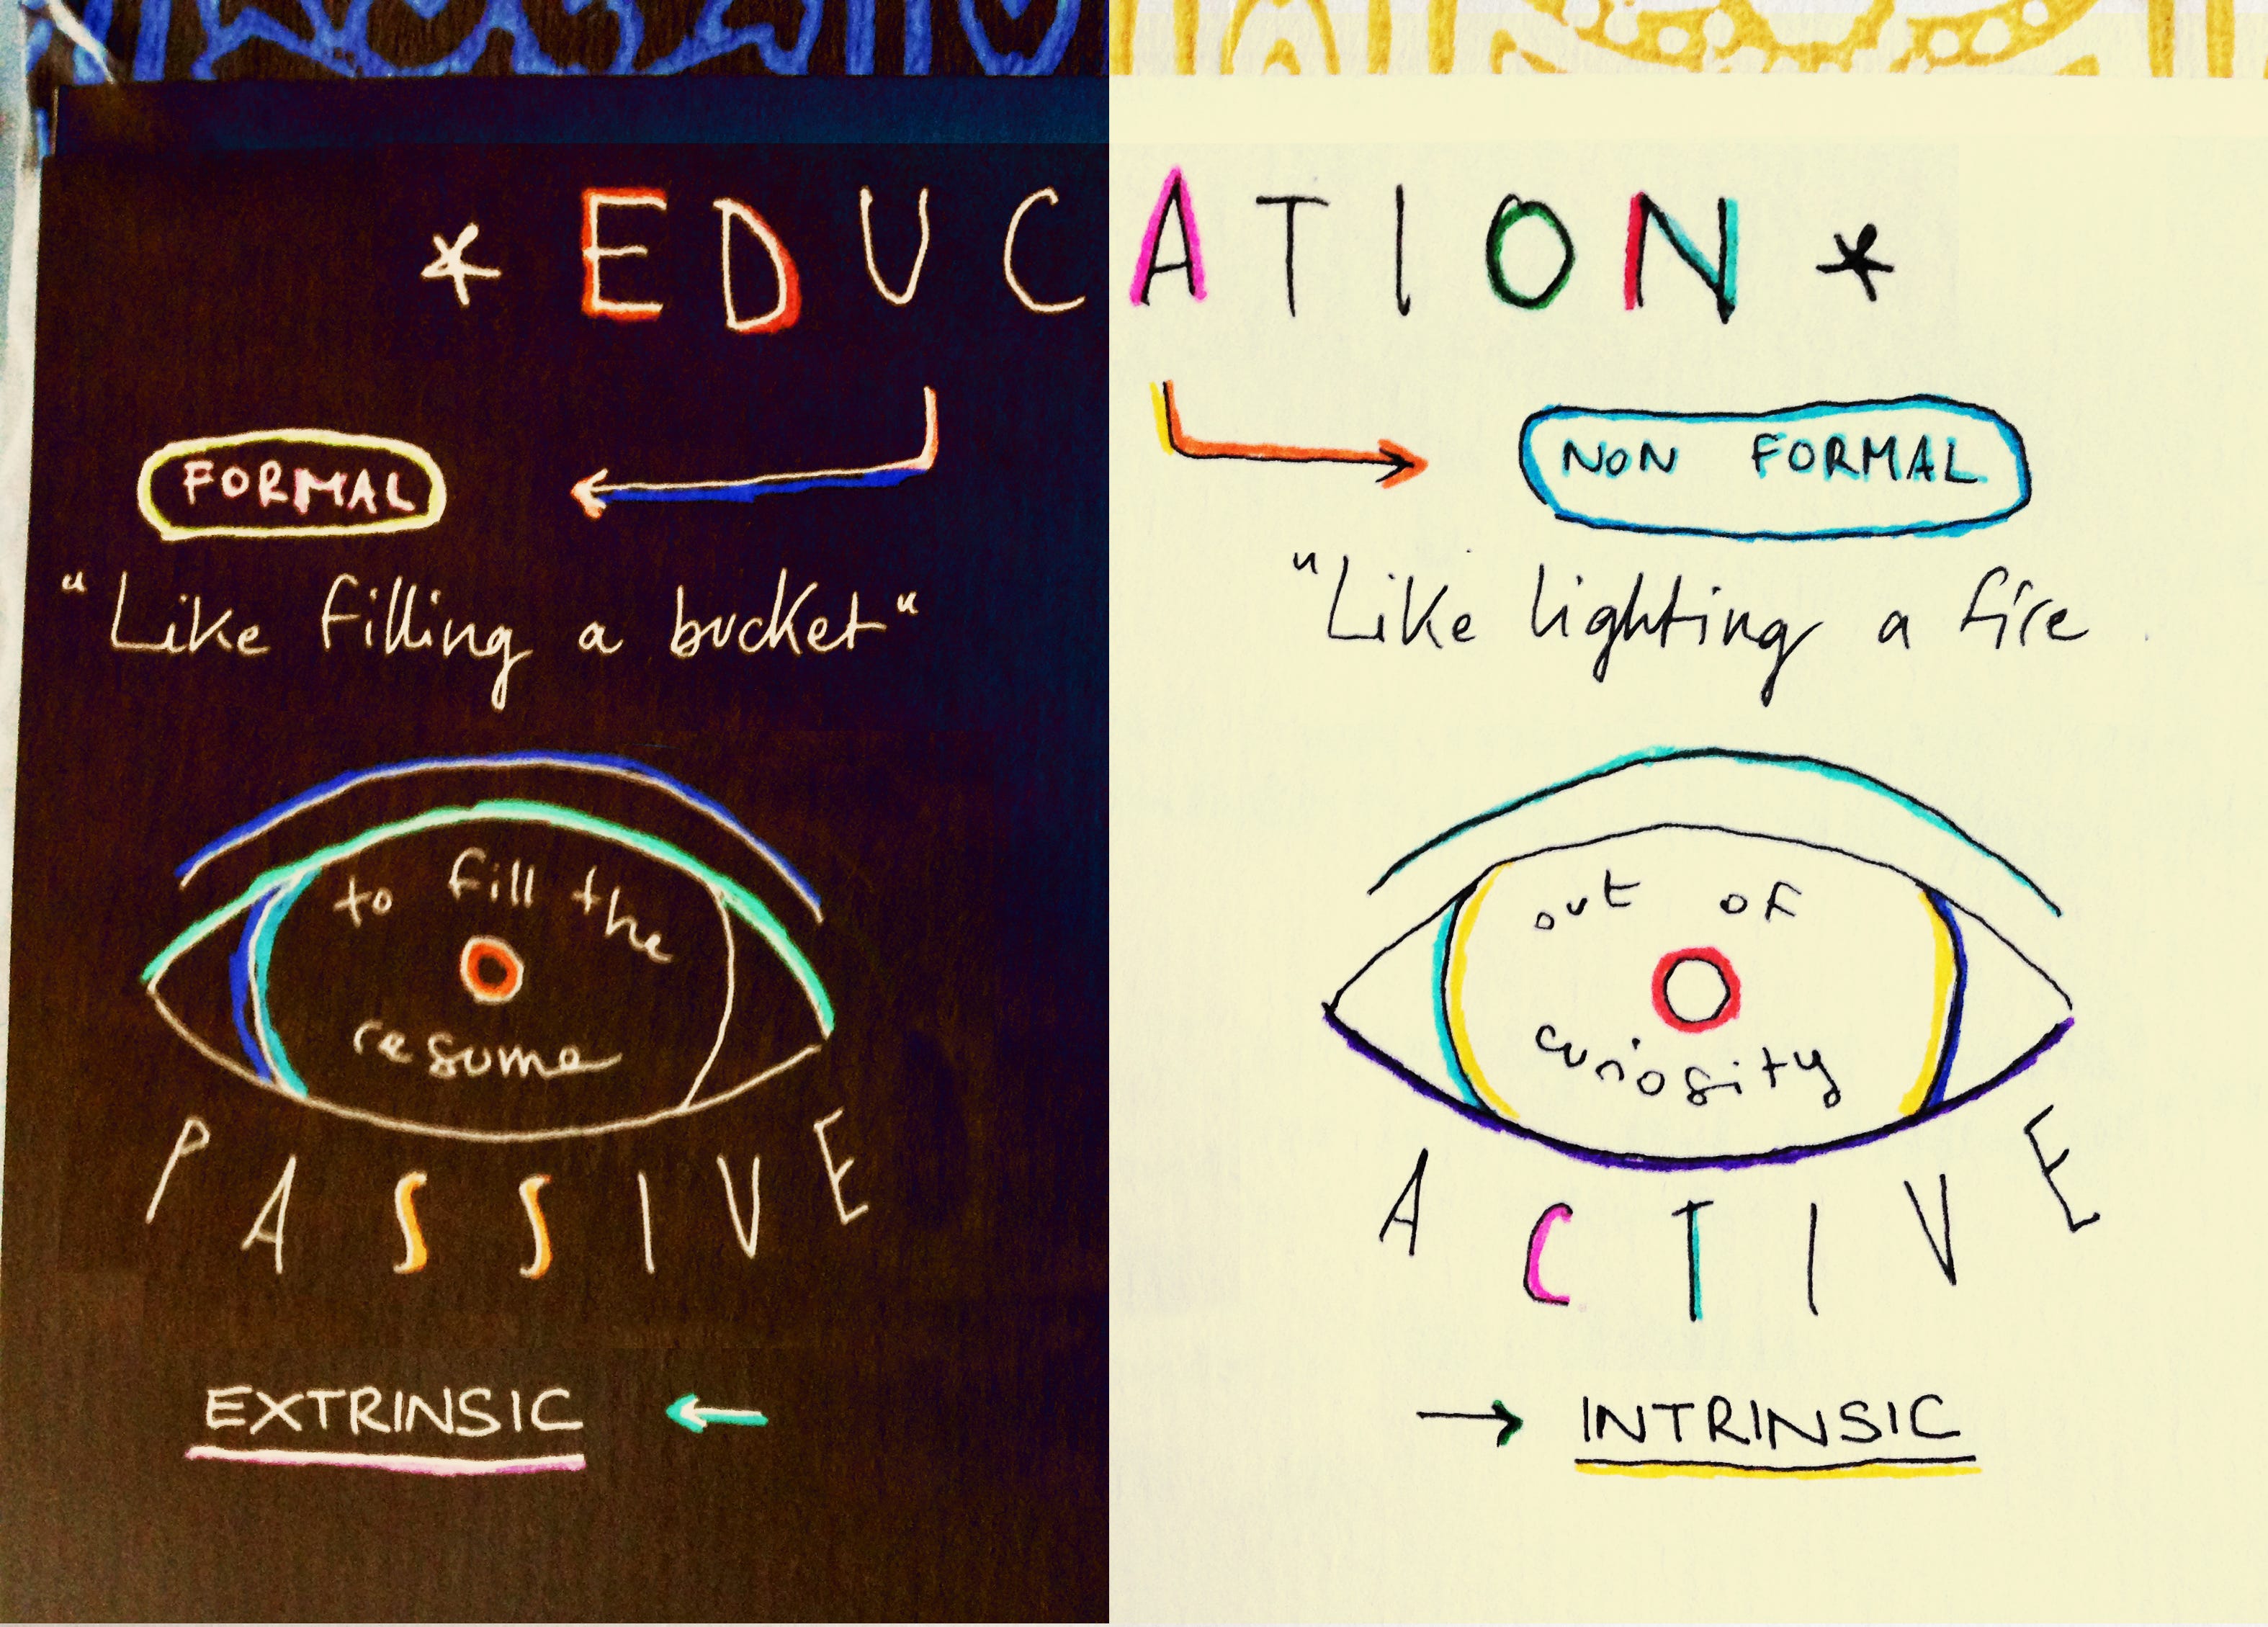 * EDUCATION *
FORMAL
"Like filling a bucket"
to fill the
resume
PASSIVE
EXTRINSIC
NON FORMAL
"Like lighting a fire
out of
curiosity
ACTIVE
INTRINSIC